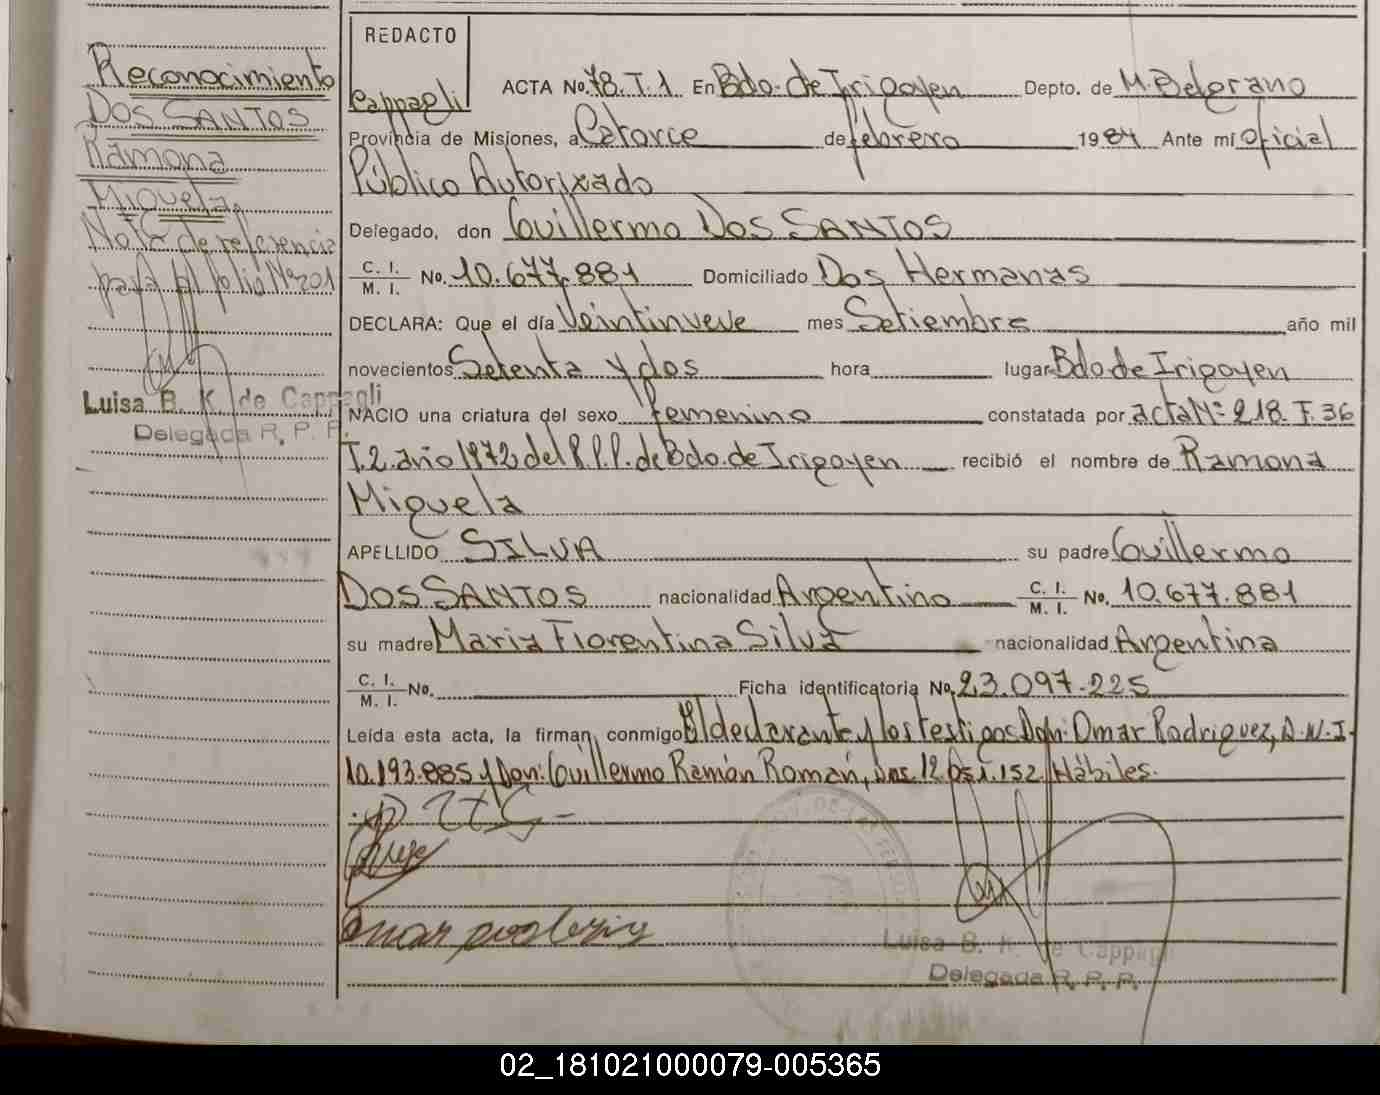 Reconocimiento
DOS SANTOS
Ramona
Miquela,
Nota de referencia
para al folio Nº 201
Luisa B. K. de Cappagli
Delegada R. P. P.
REDACTO
Cappagli
ACTA No. 78. T. 1 En Bdo. de Irigoyen Depto. de M. Belgrano
Provincia de Misiones, a Catorce de febrero 1984 Ante mí oficial
Público Autorizado
Delegado, don Guillermo DOS SANTOS
C. I. M. I. No. 10.677.881 Domiciliado Dos Hermanas
DECLARA: Que el día Veintinueve mes Setiembre año mil
novecientos Setenta y dos hora lugar Bdo de Irigoyen
NACIO una criatura del sexo femenino constatada por acta Nº 218. F. 36
T. 2. año 1972 del R.P.P. de Bdo. de Irigoyen recibió el nombre de Ramona
Miquela
APELLIDO SILVA su padre Guillermo
DOS SANTOS nacionalidad Argentino C. I. M. I. No. 10.677.881
su madre Maria Florentina Silva nacionalidad Argentina
C. I. M. I. No. Ficha identificatoria No. 23.097.225
Leída esta acta, la firman conmigo El declarante y los testigos Don: Omar Rodriguez, D.N.I.
10.193.885 y Don: Guillermo Ramón Roman, 152 Hábiles.
Luisa B. K. de Cappagli
Delegada R. P. P.
02_181021000079-005365